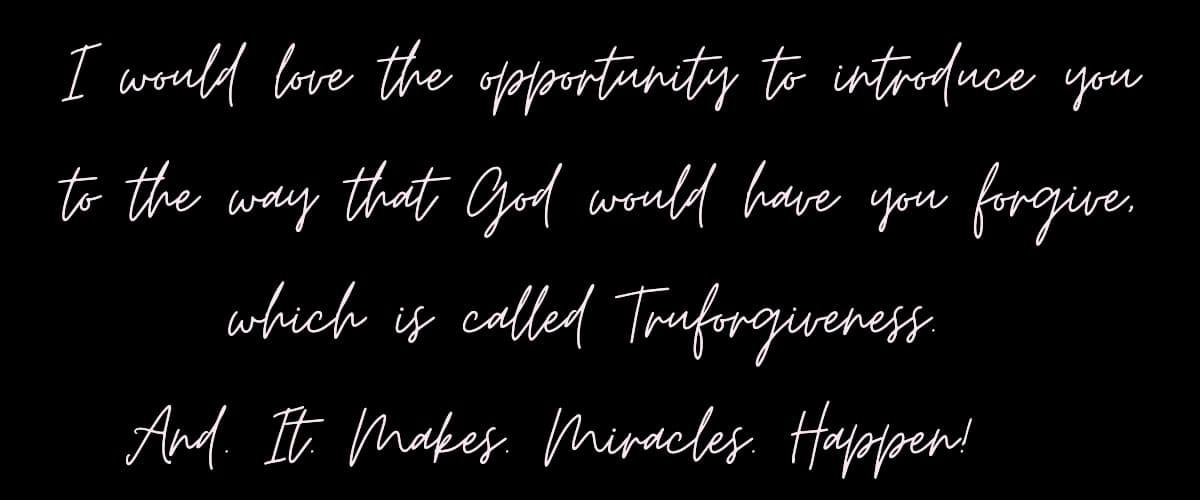 I would love the opportunity to introduce you
to the way that God would have you forgive,
which is called Truforgiveness.
And. It. Makes. Miracles. Happen!